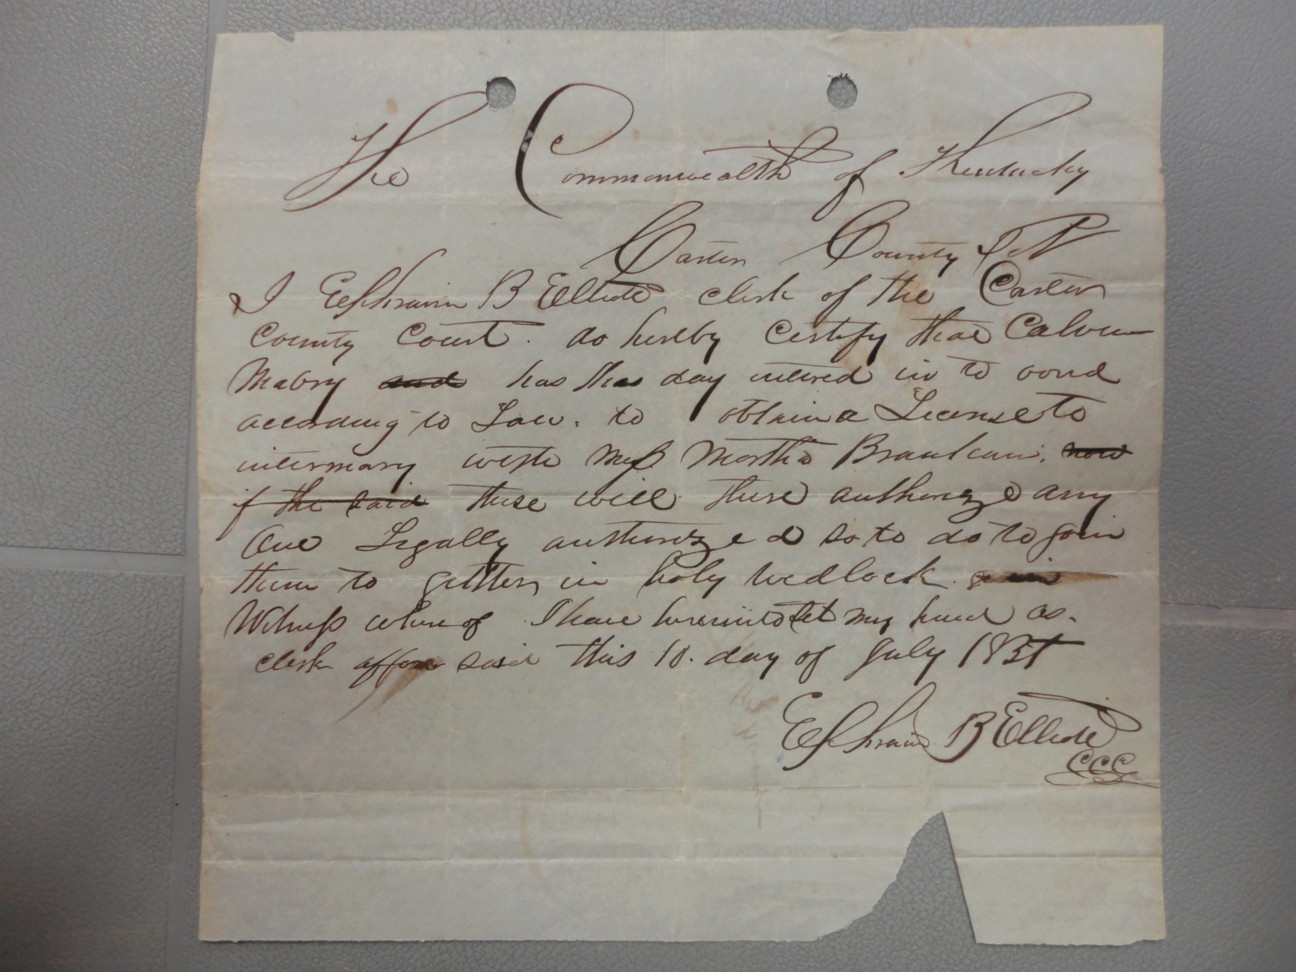 The Commonwealth of Kentucky
Carter County
I Ephraim B Elliott clerk of the Carter
County Court. do hereby Certify that Calvin
Mabry and has this day intered in to
according to Law. to obtain a License to
intermary with Miss Martha now
if the said these will there authorize any
One Legally authorized so to do to join
them to gether in holy wedlock
Witness where of I have hereinto Set my hand as.
clerk affore said this 10. day of July 1851
Ephraim B Elliott
CCC